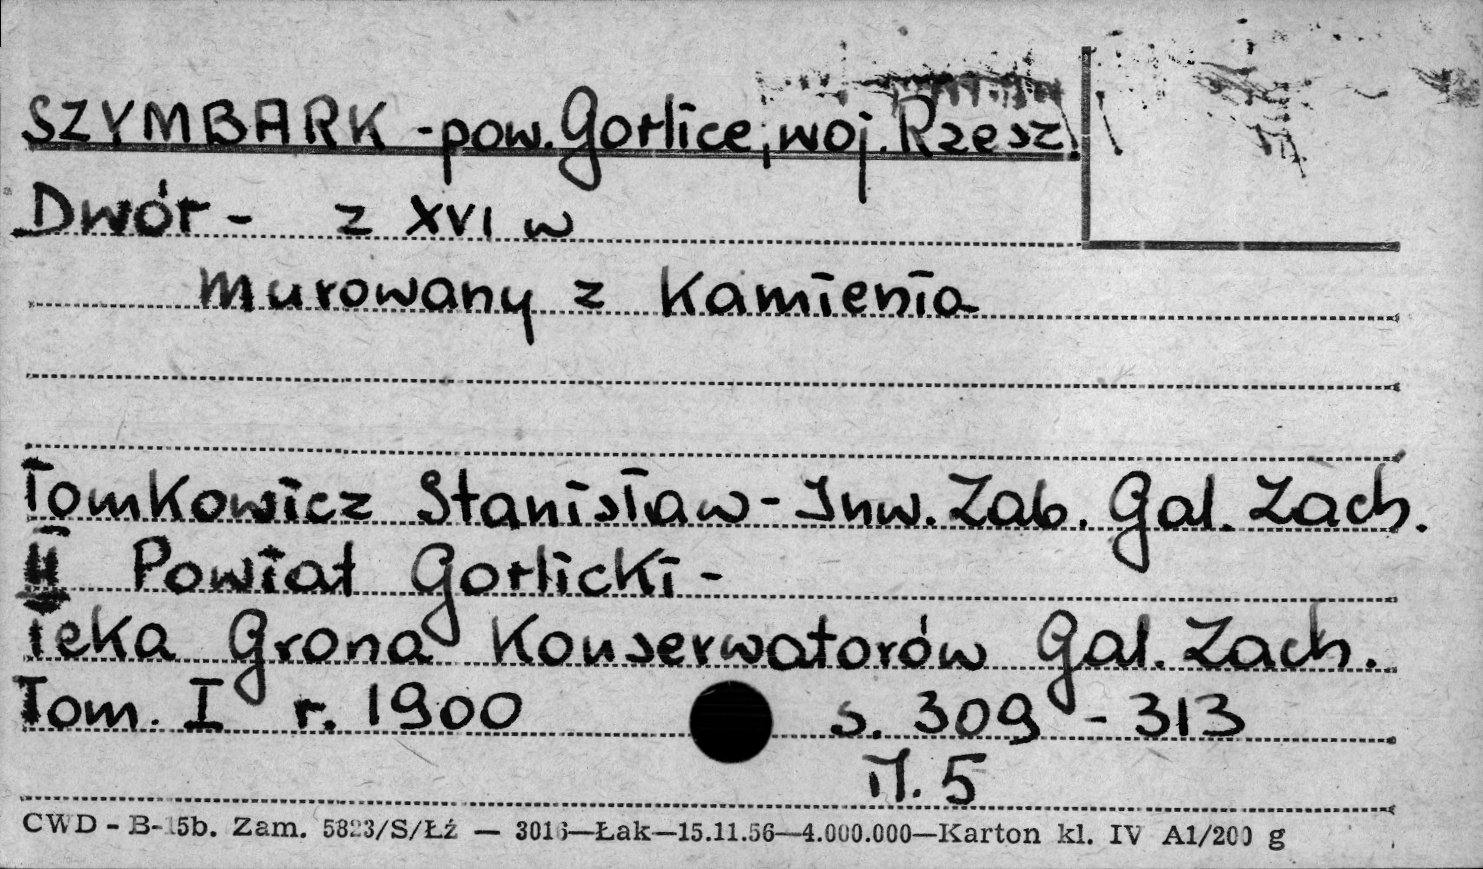 SZYMBARK - pow. Gorlice, woj. Rzesz.
Dwór - z XVI w
Murowany z Kamienia
Tomkowicz Stanisław - Inw. Zab. Gal. Zach.
II Powiat Gorlicki -
Teka Grona Konserwatorów Gal. Zach.
Tom. I r. 1900 s. 309 - 313
il. 5
CWD - B-15b. Zam. 5823/S/Łź — 3016—Łak—15.11.56—4.000.000—Karton kl. IV A1/200 g